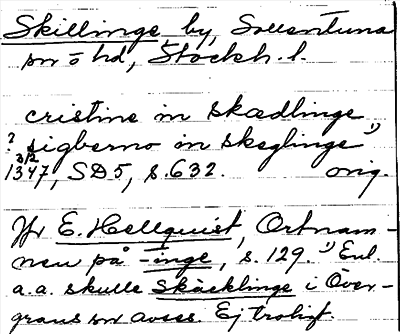 Skillinge, by, Sollentuna
sn o hd, Stockh. l.
cristine in skædlinge
? sigberno in skeglinge 1)
3/2
1347, SD5, s. 632. orig.
Jfr E. Hellquist, Ortnam-
nen på -inge, s. 129. 1) Enl.
a.a. skulle Skäcklinge i Över-
grans sn avses. Ej troligt.